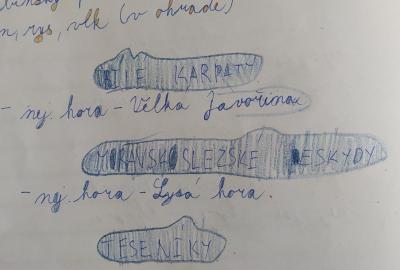 n, rys, vlk (v ohradě)
BÍLÉ KARPATY
- nej. hora - Velká Javořina
MORAVSKOSLEZSKÉ BESKYDY
- nej. hora - Lysá hora.
JESENÍKY